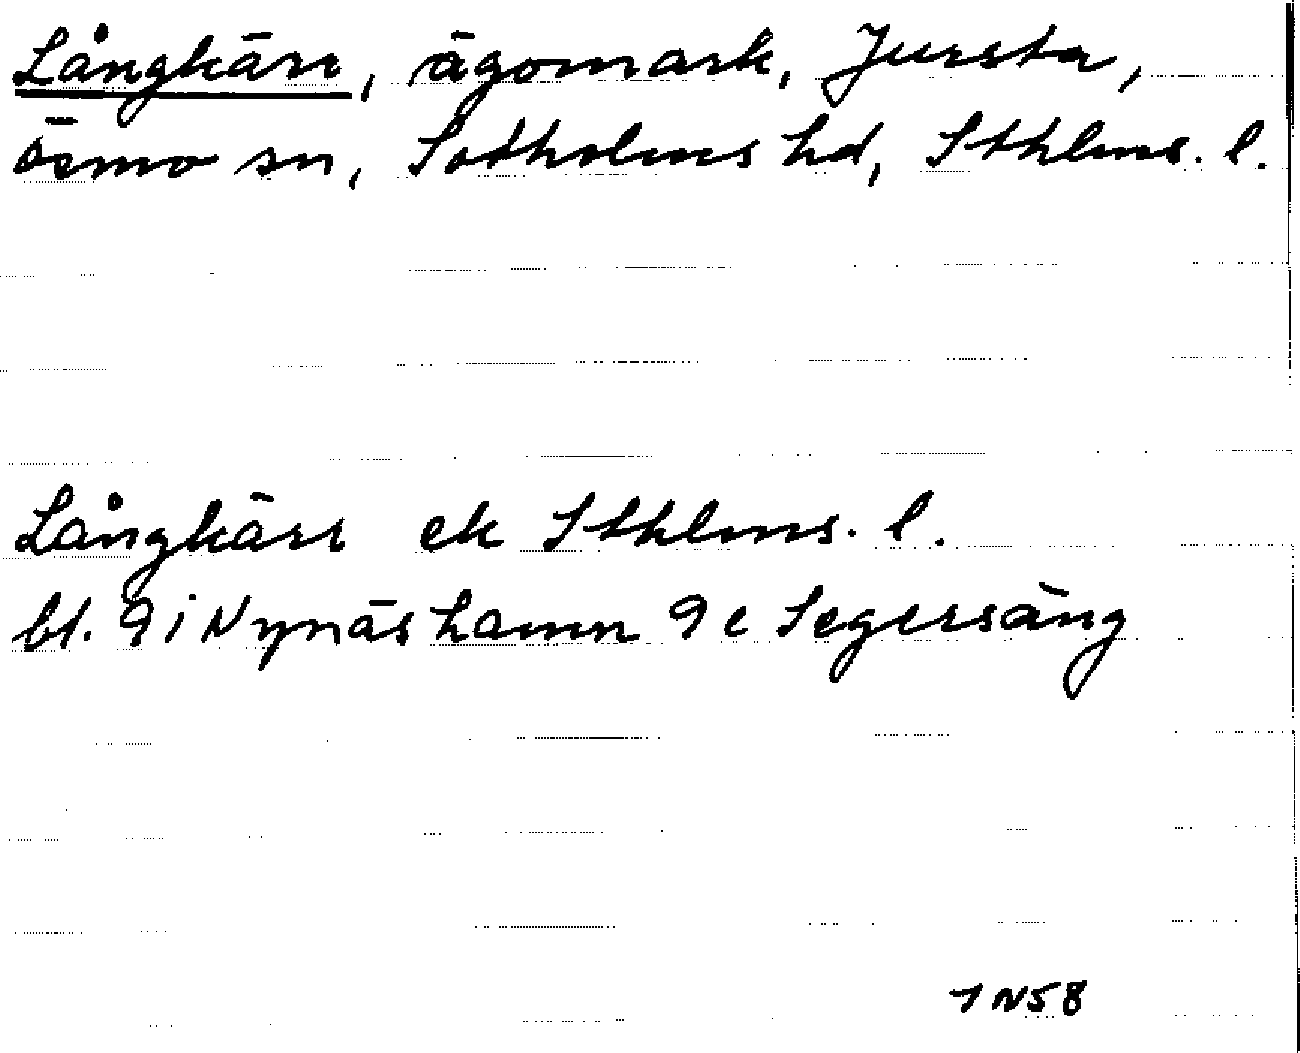 Långkärr, ägomark, Jursta,
Ösmo sn, Sotholms hd, Sthlms. l.
Långkärr ek Sthlms. l.
bl. 9i Nynäshamn 9e Segersäng
7N58